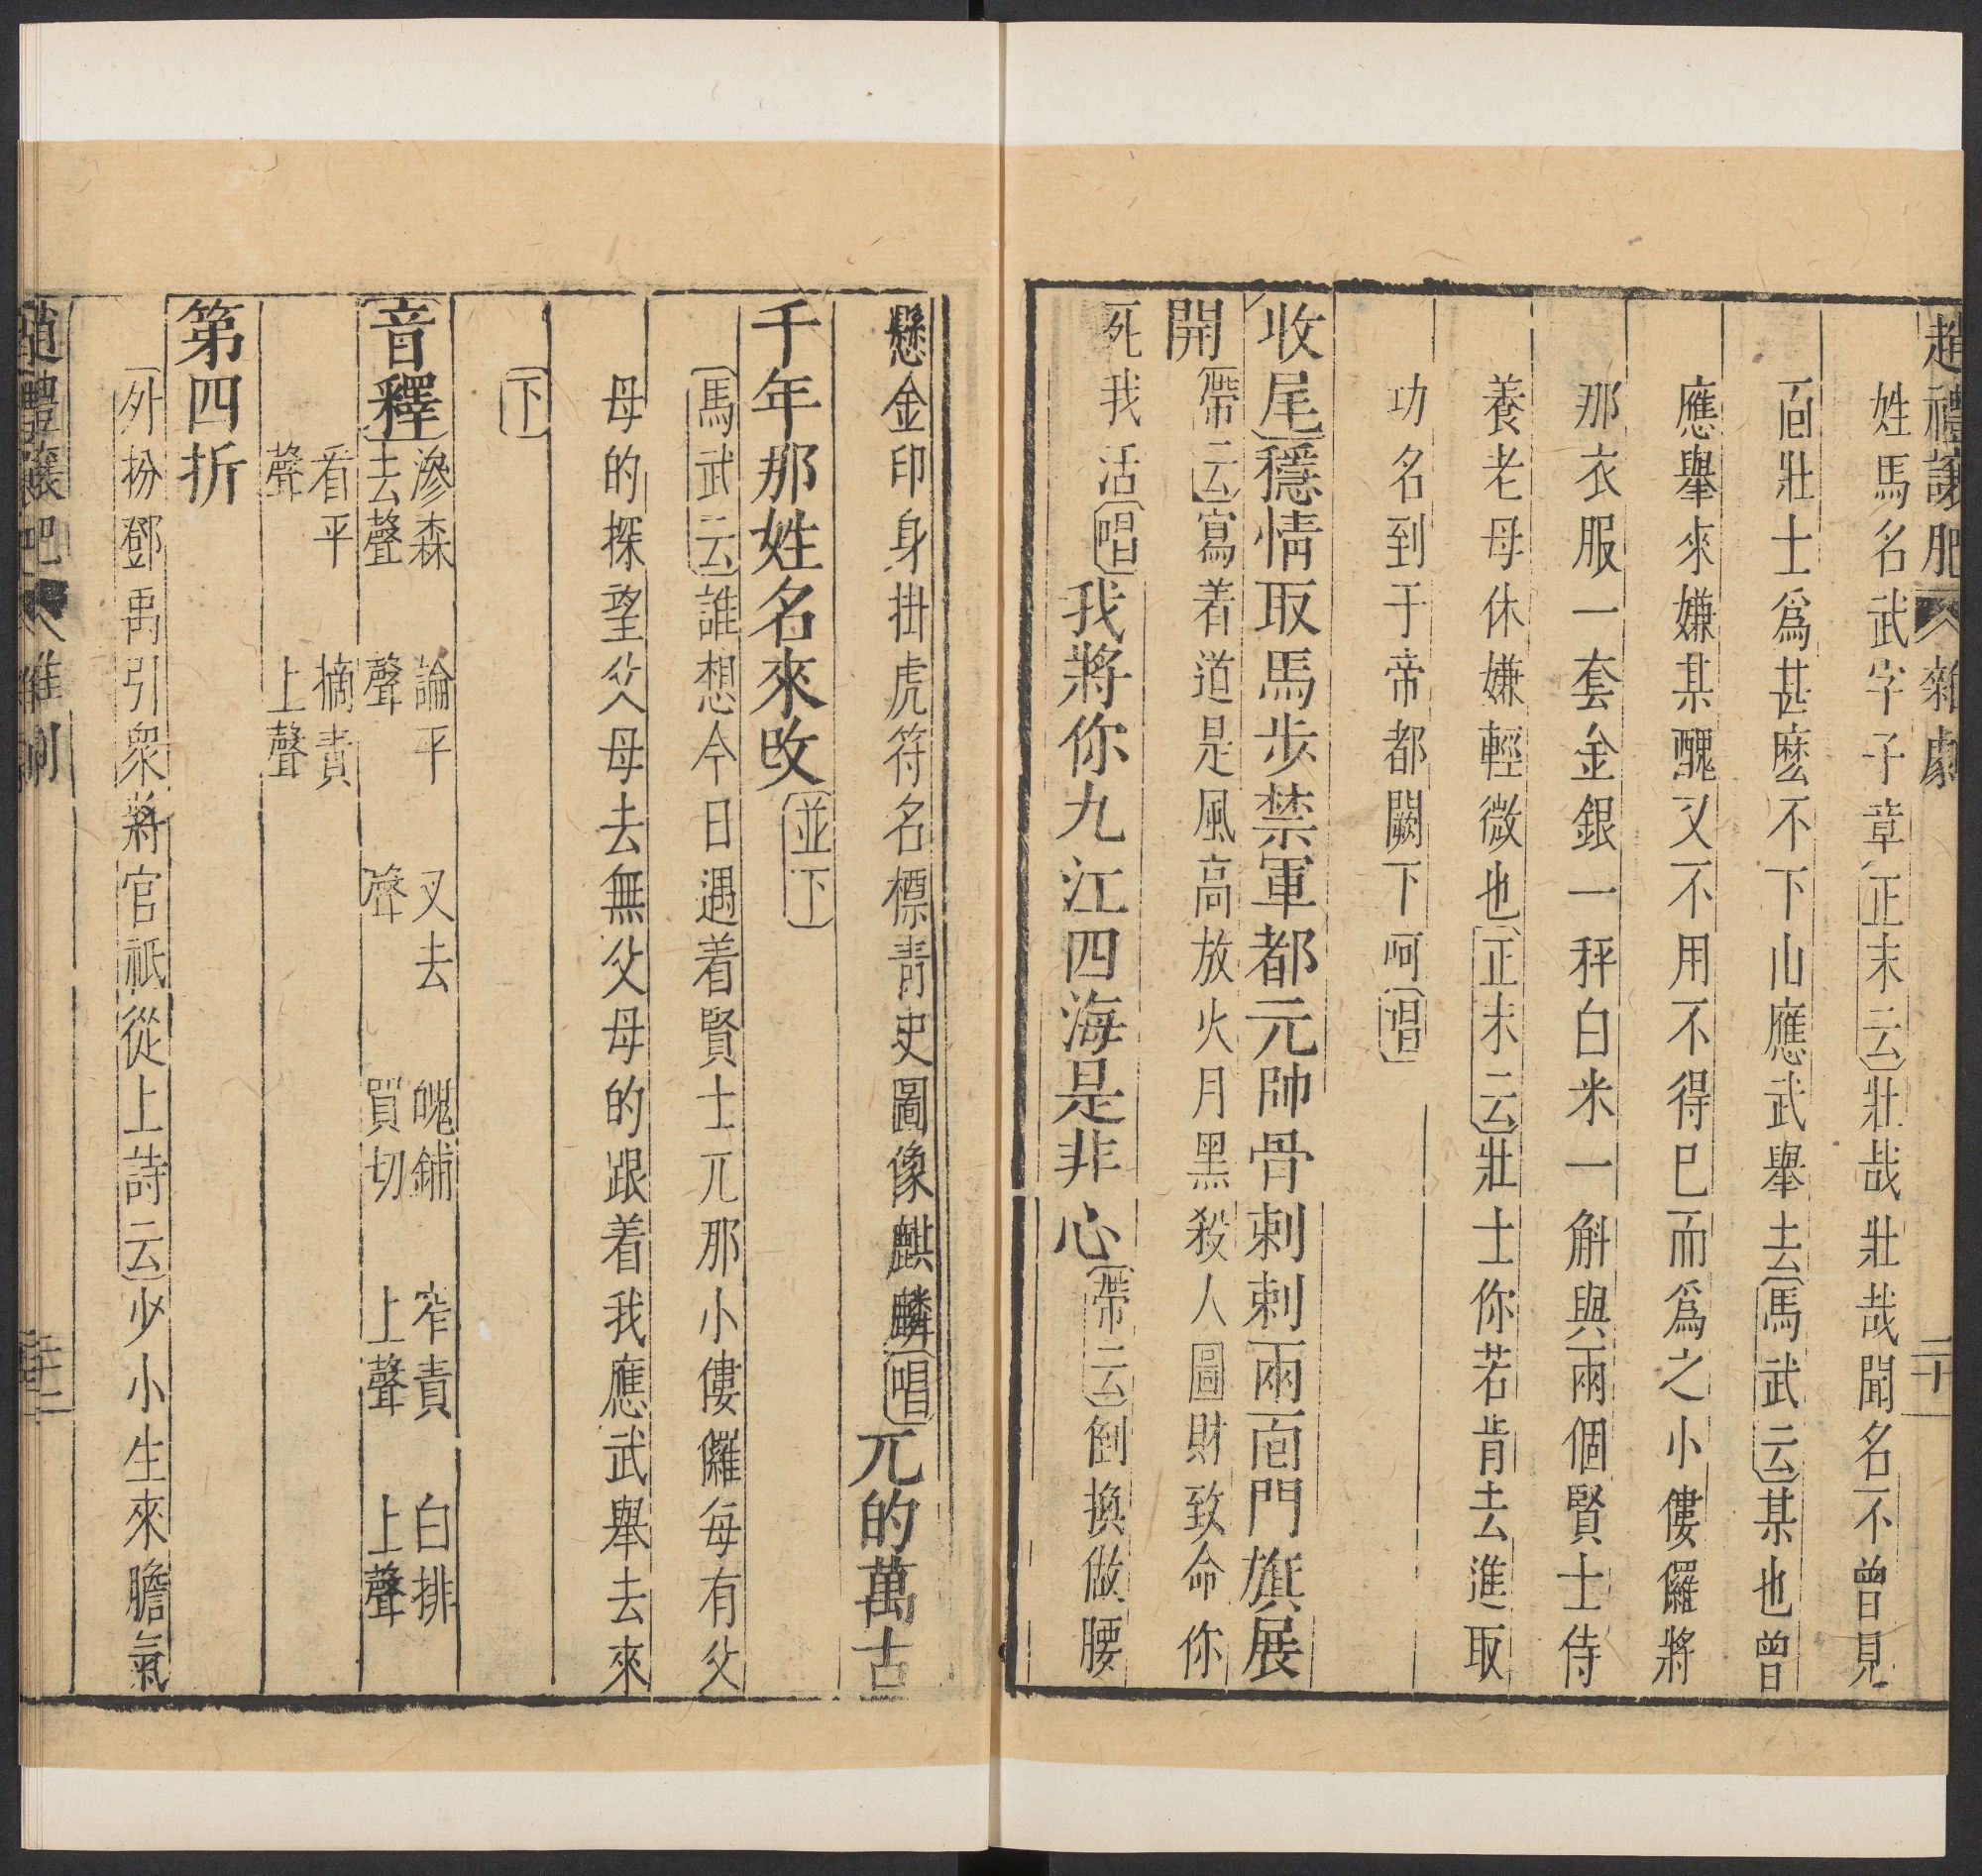 趙禮讓肥 雜劇 二十一
姓馬名武字子章正末云壯哉壯哉聞名不曾見
面壯士爲甚麽不下山應武舉去馬武云某也曾
應舉來嫌某醜又不用不得巳而爲之小僂儸將
那衣服一套金銀一秤白米一斛與兩個賢士侍
養老母休嫌輕微也正末云壯士你若肯去進取
功名到于帝都闕下呵唱
收尾穩情取馬步禁軍都元帥骨剌剌兩面門旗展
開帶云寫着道是風高放火月黑殺人圖財致命你
死我活唱我將你九江四海是非心帶云倒換做腰
懸金印身掛虎符名標青史圖像麒麟唱兀的萬古
千年那姓名來改並下
馬武云誰想今日遇着賢士兀那小僂儸每有父
母的探望父母去無父母的跟着我應武舉去來
下
音釋 滲森去聲 論平聲 叉去聲 䫥鋪買切 窄責上聲 白排上聲
看平聲 摘責上聲
第四折
外扮鄧禹引衆將官祗從上詩云少小生來膽氣
趙禮讓肥 雜劇